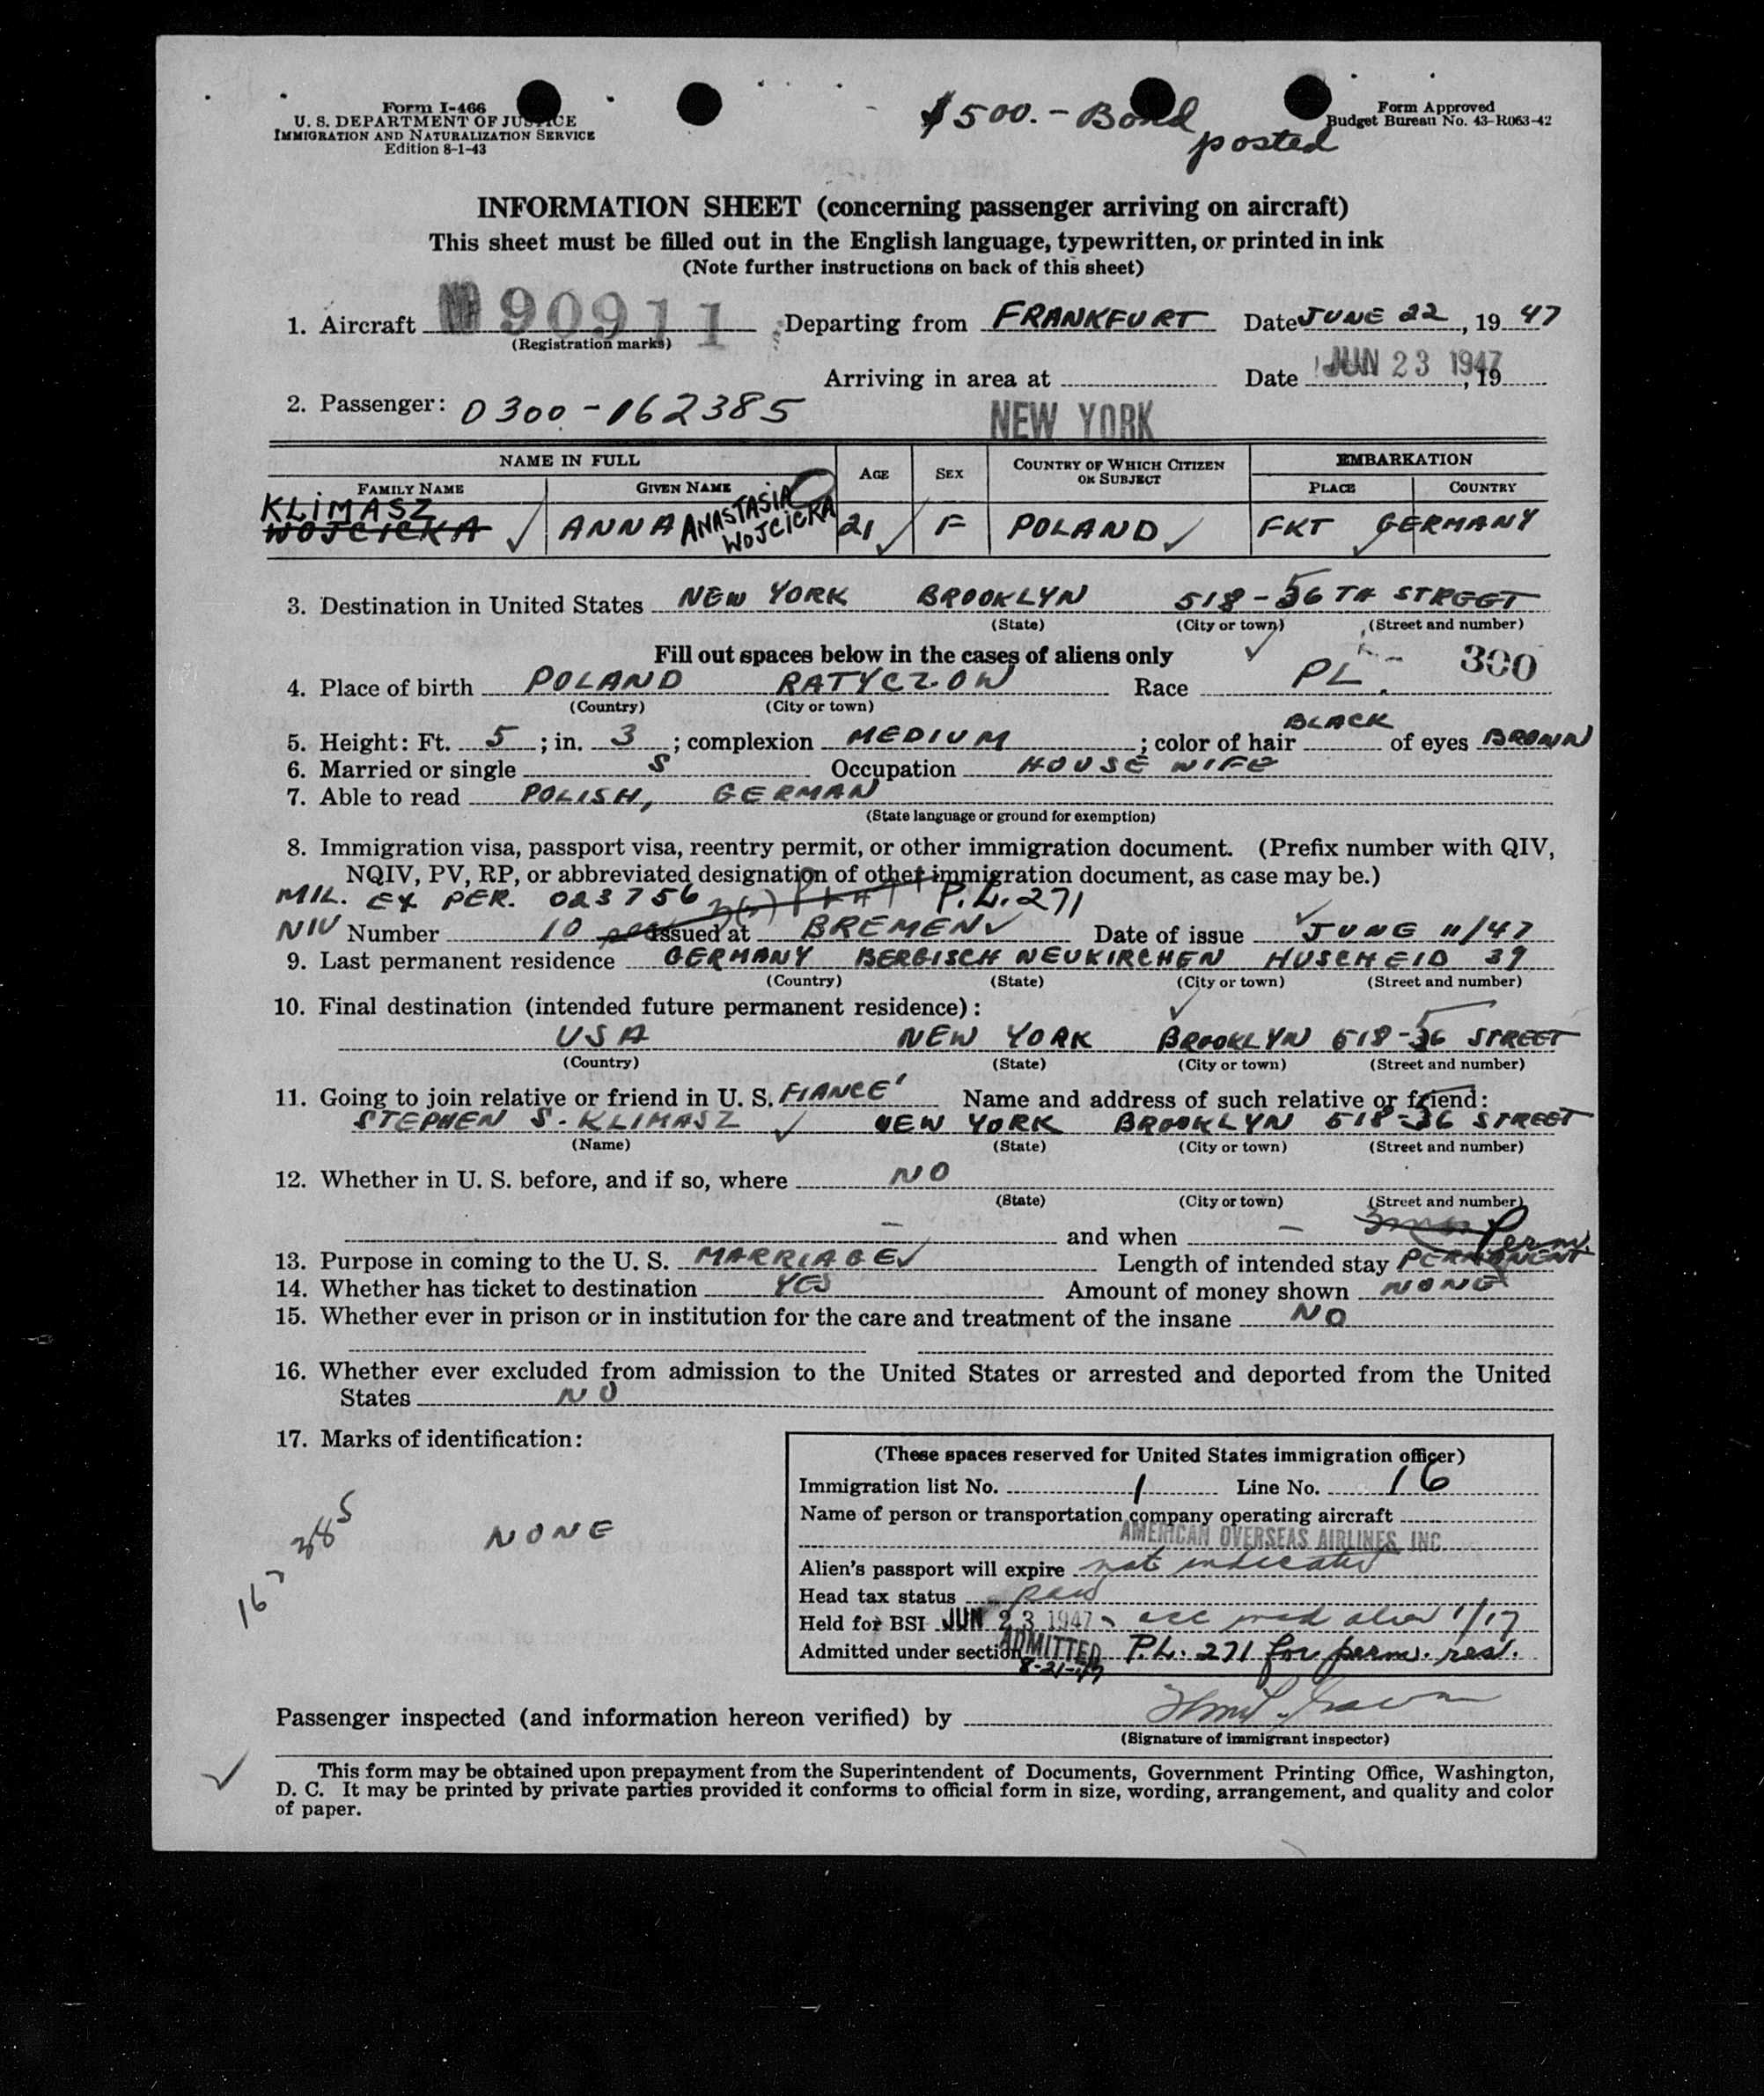 Form I-466
U. S. DEPARTMENT OF JUSTICE
IMMIGRATION AND NATURALIZATION SERVICE
Edition 8-1-43
$500.- Bond
posted
Form Approved
Budget Bureau No. 43-R063-42
INFORMATION SHEET (concerning passenger arriving on aircraft)
This sheet must be filled out in the English language, typewritten, or printed in ink
(Note further instructions on back of this sheet)
1. Aircraft 90911 Departing from FRANKFURT Date JUNE 22, 1947
(Registration marks)
Arriving in area at Date JUN 23 1947, 19
2. Passenger: 0300-162385 NEW YORK
NAME IN FULL AGE SEX COUNTRY OF WHICH CITIZEN OR SUBJECT EMBARKATION
FAMILY NAME GIVEN NAME PLACE COUNTRY
KLIMASZ ANASTASIA
WOJCICKA ANNA WOJCICKA 21 F POLAND FKT GERMANY
3. Destination in United States NEW YORK BROOKLYN 518-56 TH STREET
(State) (City or town) (Street and number)
Fill out spaces below in the cases of aliens only
300
4. Place of birth POLAND RATYCZOW Race PL.
(Country) (City or town)
5. Height: Ft. 5; in. 3; complexion MEDIUM; color of hair BLACK of eyes BROWN
6. Married or single S Occupation HOUSE WIFE
7. Able to read POLISH, GERMAN
(State language or ground for exemption)
8. Immigration visa, passport visa, reentry permit, or other immigration document. (Prefix number with QIV,
NQIV, PV, RP, or abbreviated designation of other immigration document, as case may be.)
MIL. EX PER. 023756 P.L. 271
NIV Number 10 Issued at BREMEN Date of issue JUNE 11/47
9. Last permanent residence GERMANY BERGISCH NEUKIRCHEN HUSCHEID 39
(Country) (State) (City or town) (Street and number)
10. Final destination (intended future permanent residence):
USA NEW YORK BROOKLYN 518-56 STREET
(Country) (State) (City or town) (Street and number)
11. Going to join relative or friend in U. S. FIANCE' Name and address of such relative or friend:
STEPHEN S. KLIMASZ NEW YORK BROOKLYN 518-56 STREET
(Name) (State) (City or town) (Street and number)
12. Whether in U. S. before, and if so, where NO
(State) (City or town) (Street and number)
- and when -
Perm.
13. Purpose in coming to the U. S. MARRIAGE Length of intended stay PERMANENT
14. Whether has ticket to destination YES Amount of money shown NONE
15. Whether ever in prison or in institution for the care and treatment of the insane NO
16. Whether ever excluded from admission to the United States or arrested and deported from the United
States NO
17. Marks of identification:
NONE
(These spaces reserved for United States immigration officer)
Immigration list No. 1 Line No. 16
Name of person or transportation company operating aircraft
AMERICAN OVERSEAS AIRLINES, INC
Alien's passport will expire not indicated
Head tax status paid
Held for BSI JUN 23 1947 - 1/17
Admitted under section ADMITTED P.L. 271 for perm. res.
8-21-47
Passenger inspected (and information hereon verified) by
(Signature of immigrant inspector)
This form may be obtained upon prepayment from the Superintendent of Documents, Government Printing Office, Washington,
D. C. It may be printed by private parties provided it conforms to official form in size, wording, arrangement, and quality and color
of paper.